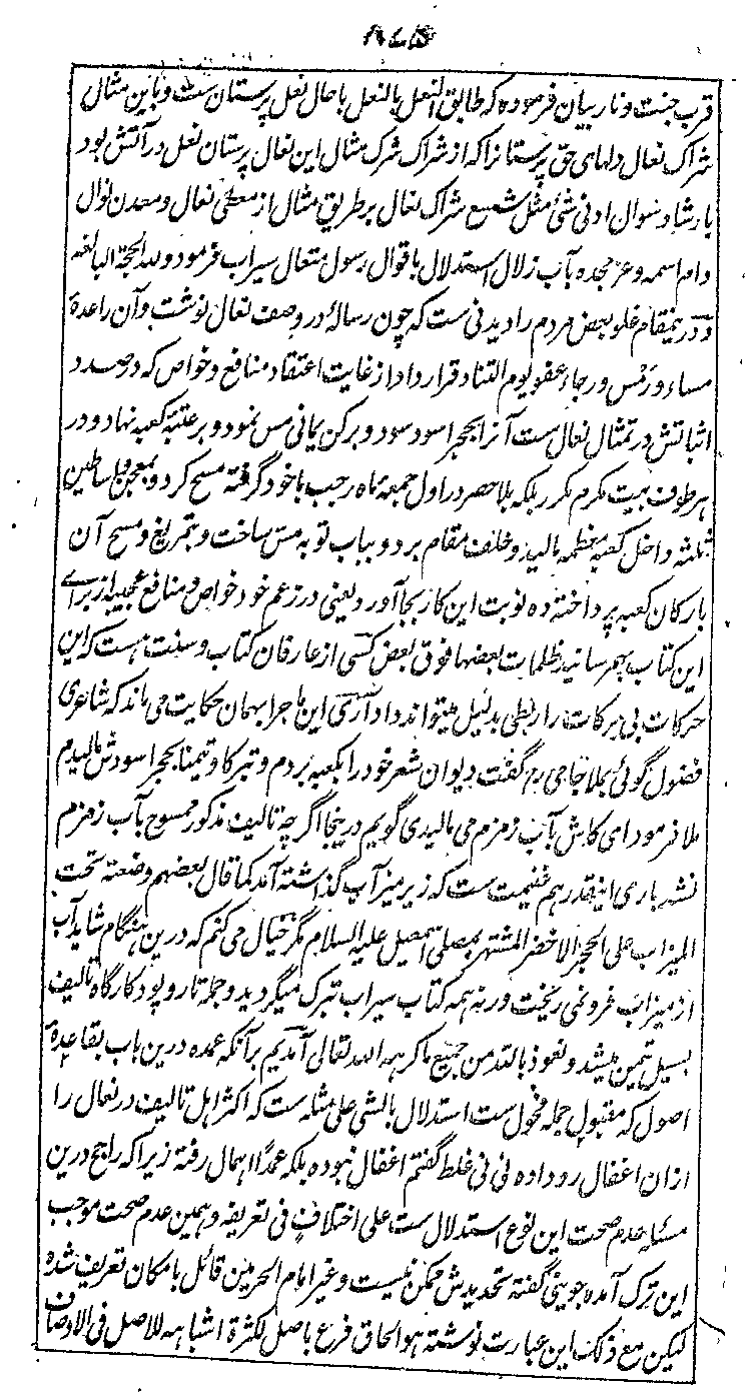 قرب جنت و نار بیان فرموده که طابق النعل بالنعل با حال نعل پرستان ست و باین مثال
شراک نعال دلهای حق پرستانرا که از شراک شرک مثال این نعال پرستان نعل در آتش بود
بارشاد سوال ادنی شئ مثل شسع شراک نعال بر طریق مثال از معطی نعال و معدن نوال
دام اسمه و عز مجده بآب زلال استدلال باقوال رسول متعال سیراب فرمود و لله الحجة البالغه
و درینمقام غلو بعض مردم را دیدنی ست که چون رسالۀ در وصف نعال نوشت و آن را عدۀ
مساء و رمس و رجاء عفو یوم التناد قرار داد از غایت اعتقاد منافع و خواص که در صدد
اثباتش در تمثال نعال ست آنرا بحجر اسود سود و برکن یمانی مس نمود و بر عتبۀ کعبه نهاد و در
هر طوف بیت مکرم مکرر بلکه بلا حصر در اول جمعۀ ماه رجب با خود گرفته مسح کرد و بمعجن و اساطین
ثلثه داخل کعبه معظمه مالید و خلف مقام برد و بباب توبه مس ساخت و بتمریغ و مسح آن
بارکان کعبه پرداخته ده نوبت این کار بجا آورد یعنی در زعم خود خواص و منافع عجیبه از برای
این کتاب بهم رسانید ظلمات بعضها فوق بعض کسی از عارفان کتاب و سنت هست که این
حرکات بی برکات را ربطی بدلیل میتواند داد آری این ماجرا بهمان حکایت می ماند که شاعری
فضول گوئی بملا جامی رح گفت دیوان شعر خود را بکعبه بردم و تبرکا و تیمنا بحجر اسودش مالیدم
ملا فرمود ای کاش بآب زمزم می مالیدی گویم درینجا اگرچه تالیف مذکور ممسوح بآب زمزم
نشد باری اینقدر هم غنیمت ست که زیر میزاب گذاشته آمد کما قال بعضهم وضعته تحت
المیزاب علی الحجر الاخضر المشتهر بمصلی اسمعیل علیه السلام مگر خیال می کنم که درین هنگام شاید آب
از میزاب فرو نمی ریخت ورنه همه کتاب سیراب تبرک میگردید و جمله تار و پود کارگاه تالیف
بسیل تیمن میشد و نعوذ بالله من جمیع ما کرهه الله تعالی آمدیم بر آنکه عمده درین باب بقاعدۀ
اصول که مقبول جمله فحول ست استدلال بالشئ علی مثله ست که اکثر اهل تالیف در نعال را
ازان اغفال رو داده نی نی غلط گفتم اغفال نبوده بلکه عمدًا اهمال رفته زیرا که راجح درین
مسئله عدم صحت این نوع استدلال ست علی اختلاف فی تعریفه و همین عدم صحت موجب
این ترک آمده جوینی گفته تحدیدش ممکن نیست و غیر امام الحرمین قائل بامکان تعریف شده
لیکن مع ذلک این عبارت نوشته هو الحاق فرع باصل لکثرة اشباهه للاصل فی الاوصاف